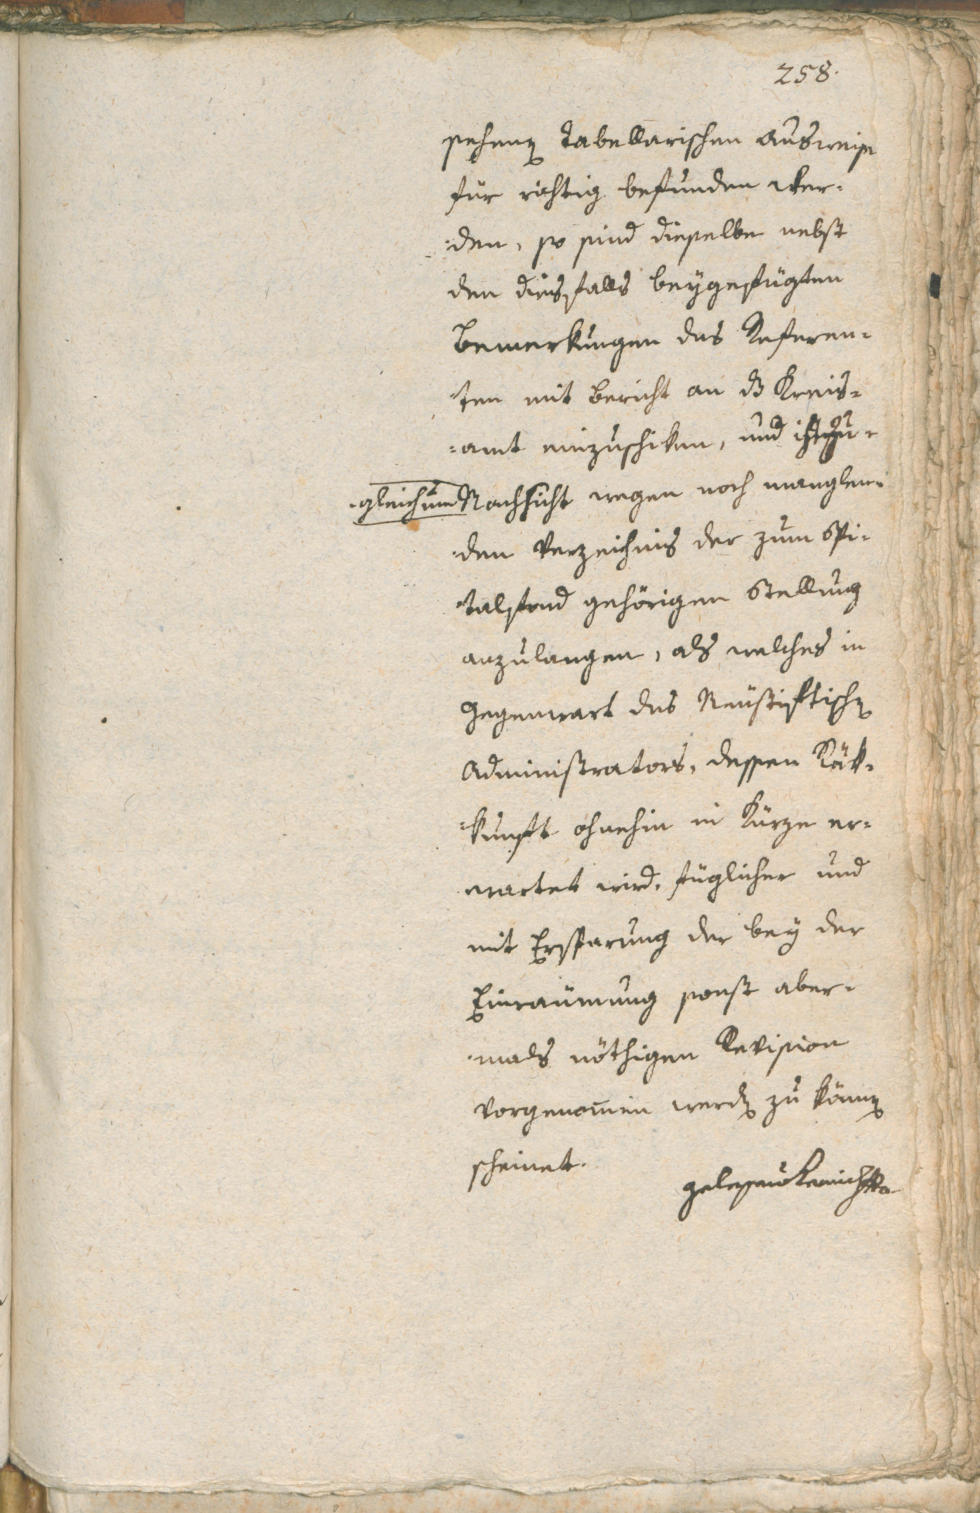 258.
sehenen Tabellarischen Ausweise
für richtig befunden wer-
:den, so sind dieselbe nebst
den diesfalls beygefügten
Bemerkungen des Referen-
ten mit Bericht an das Kreis-
:amt einzuschiken, und zu-
gleich um Nachsicht wegen noch manglen-
den Verzeichnis der zum Spi-
talfond gehörigen Stellung
anzulangen, als welches in
Gegenwart des Neustiftischen
Administrators, dessen Rük-
:kunft ohnehin in Kürze er-
wartet wird, füglicher und
mit Ersparung der bey der
Einraümung sonst aber-
mals nöthigen Revision
vorgenomen werden zu können
scheinet.
gelesen